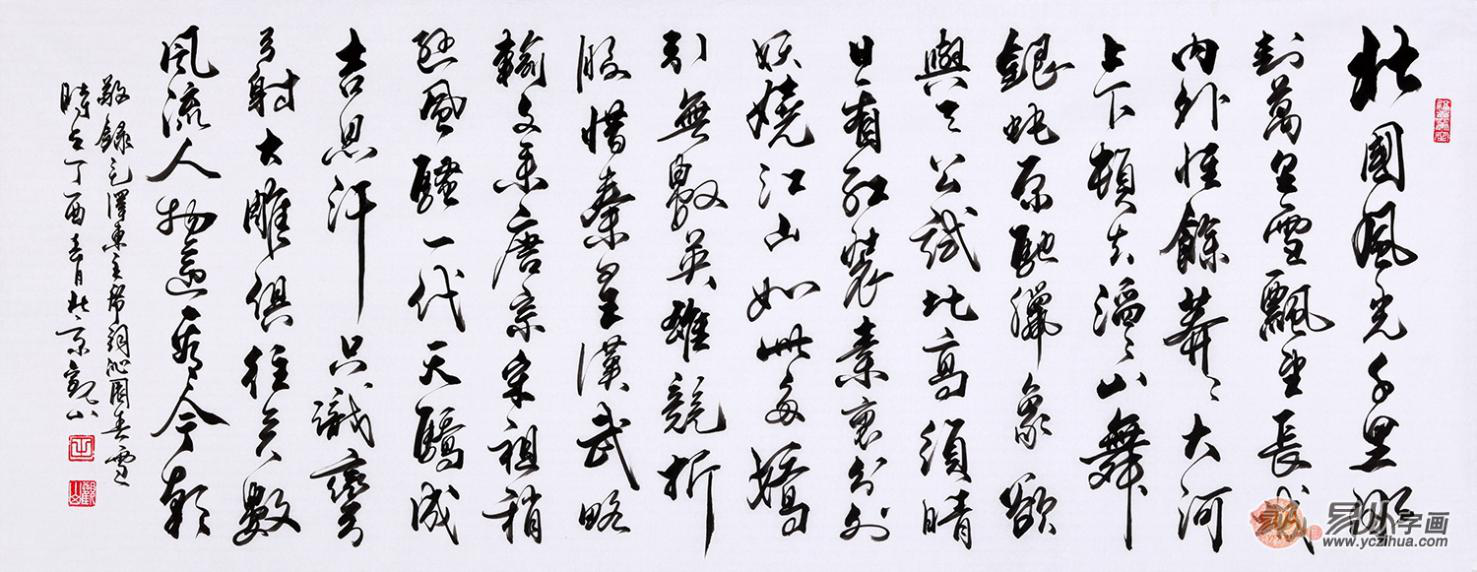 北國風光千里冰
封萬里雪飄望長城
内外惟餘莽〻大河
上下頓失滔〻山舞
銀蛇原馳臘象欲
與天公試比高須晴
日看紅裝素裹分外
妖嬈江山如此多嬌
引無數英雄競折
腰惜秦皇漢武略
輸文采唐宗宋祖稍
遜風騷一代天驕成
吉思汗只識彎
弓射大雕俱往矣數
風流人物還看今朝
敬錄毛澤東主席詞沁園春雪
時在丁酉春月北京觀山
觀山
誠
易从字画
www.yczihua.com